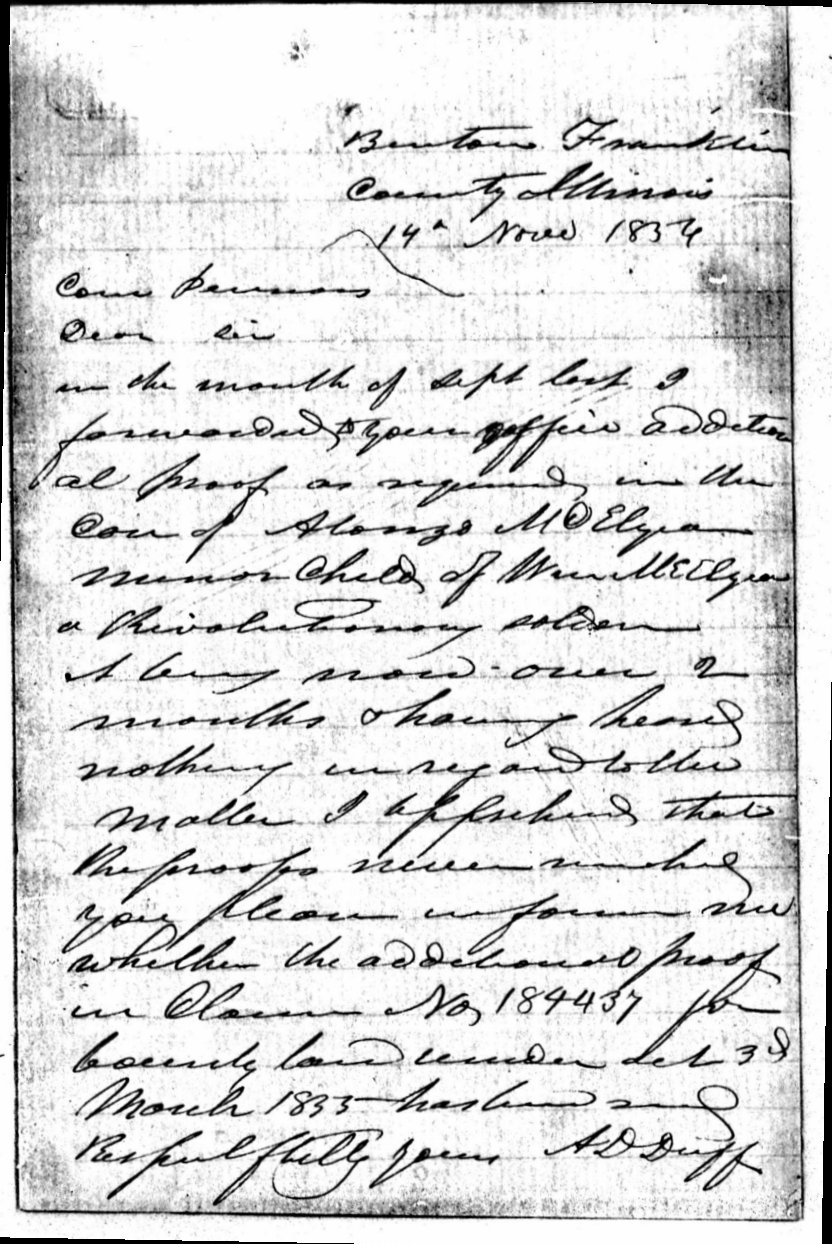 Benton Franklin
County Illinois
14th Nove 1856
Com Pensions
Dear Sir
in the month of Sept last I
forwarded to your office addition
al proof as required in the
Case of Alonzo McElyea
minor Child of Wm McElyea
a Revolutionary soldier
it being now over 2
months & having heard
nothing in regard to the
matter I apprehend that
the proofs never reached
you please inform me
whether the additional proof
in Claim No 184437 for
bounty land under act 3d
March 1855 has been recd
Respectfully yours A D Duff